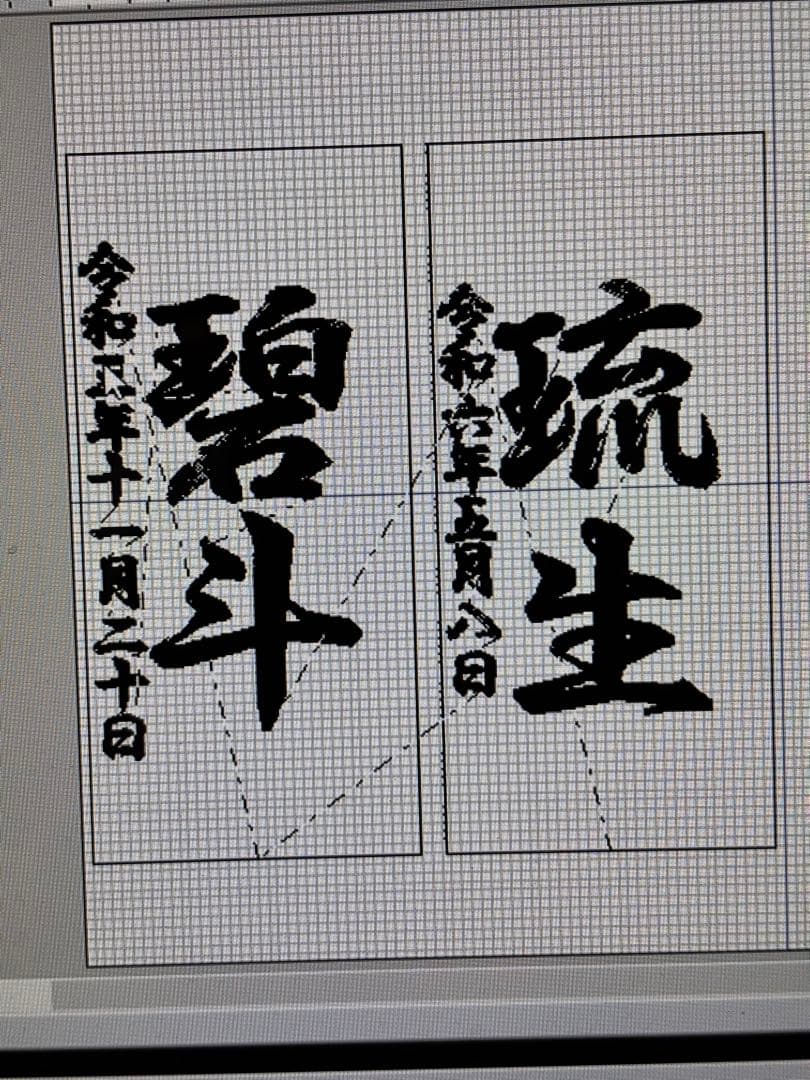 琉生
令和六年五月八日
碧斗
令和六年十一月二十日